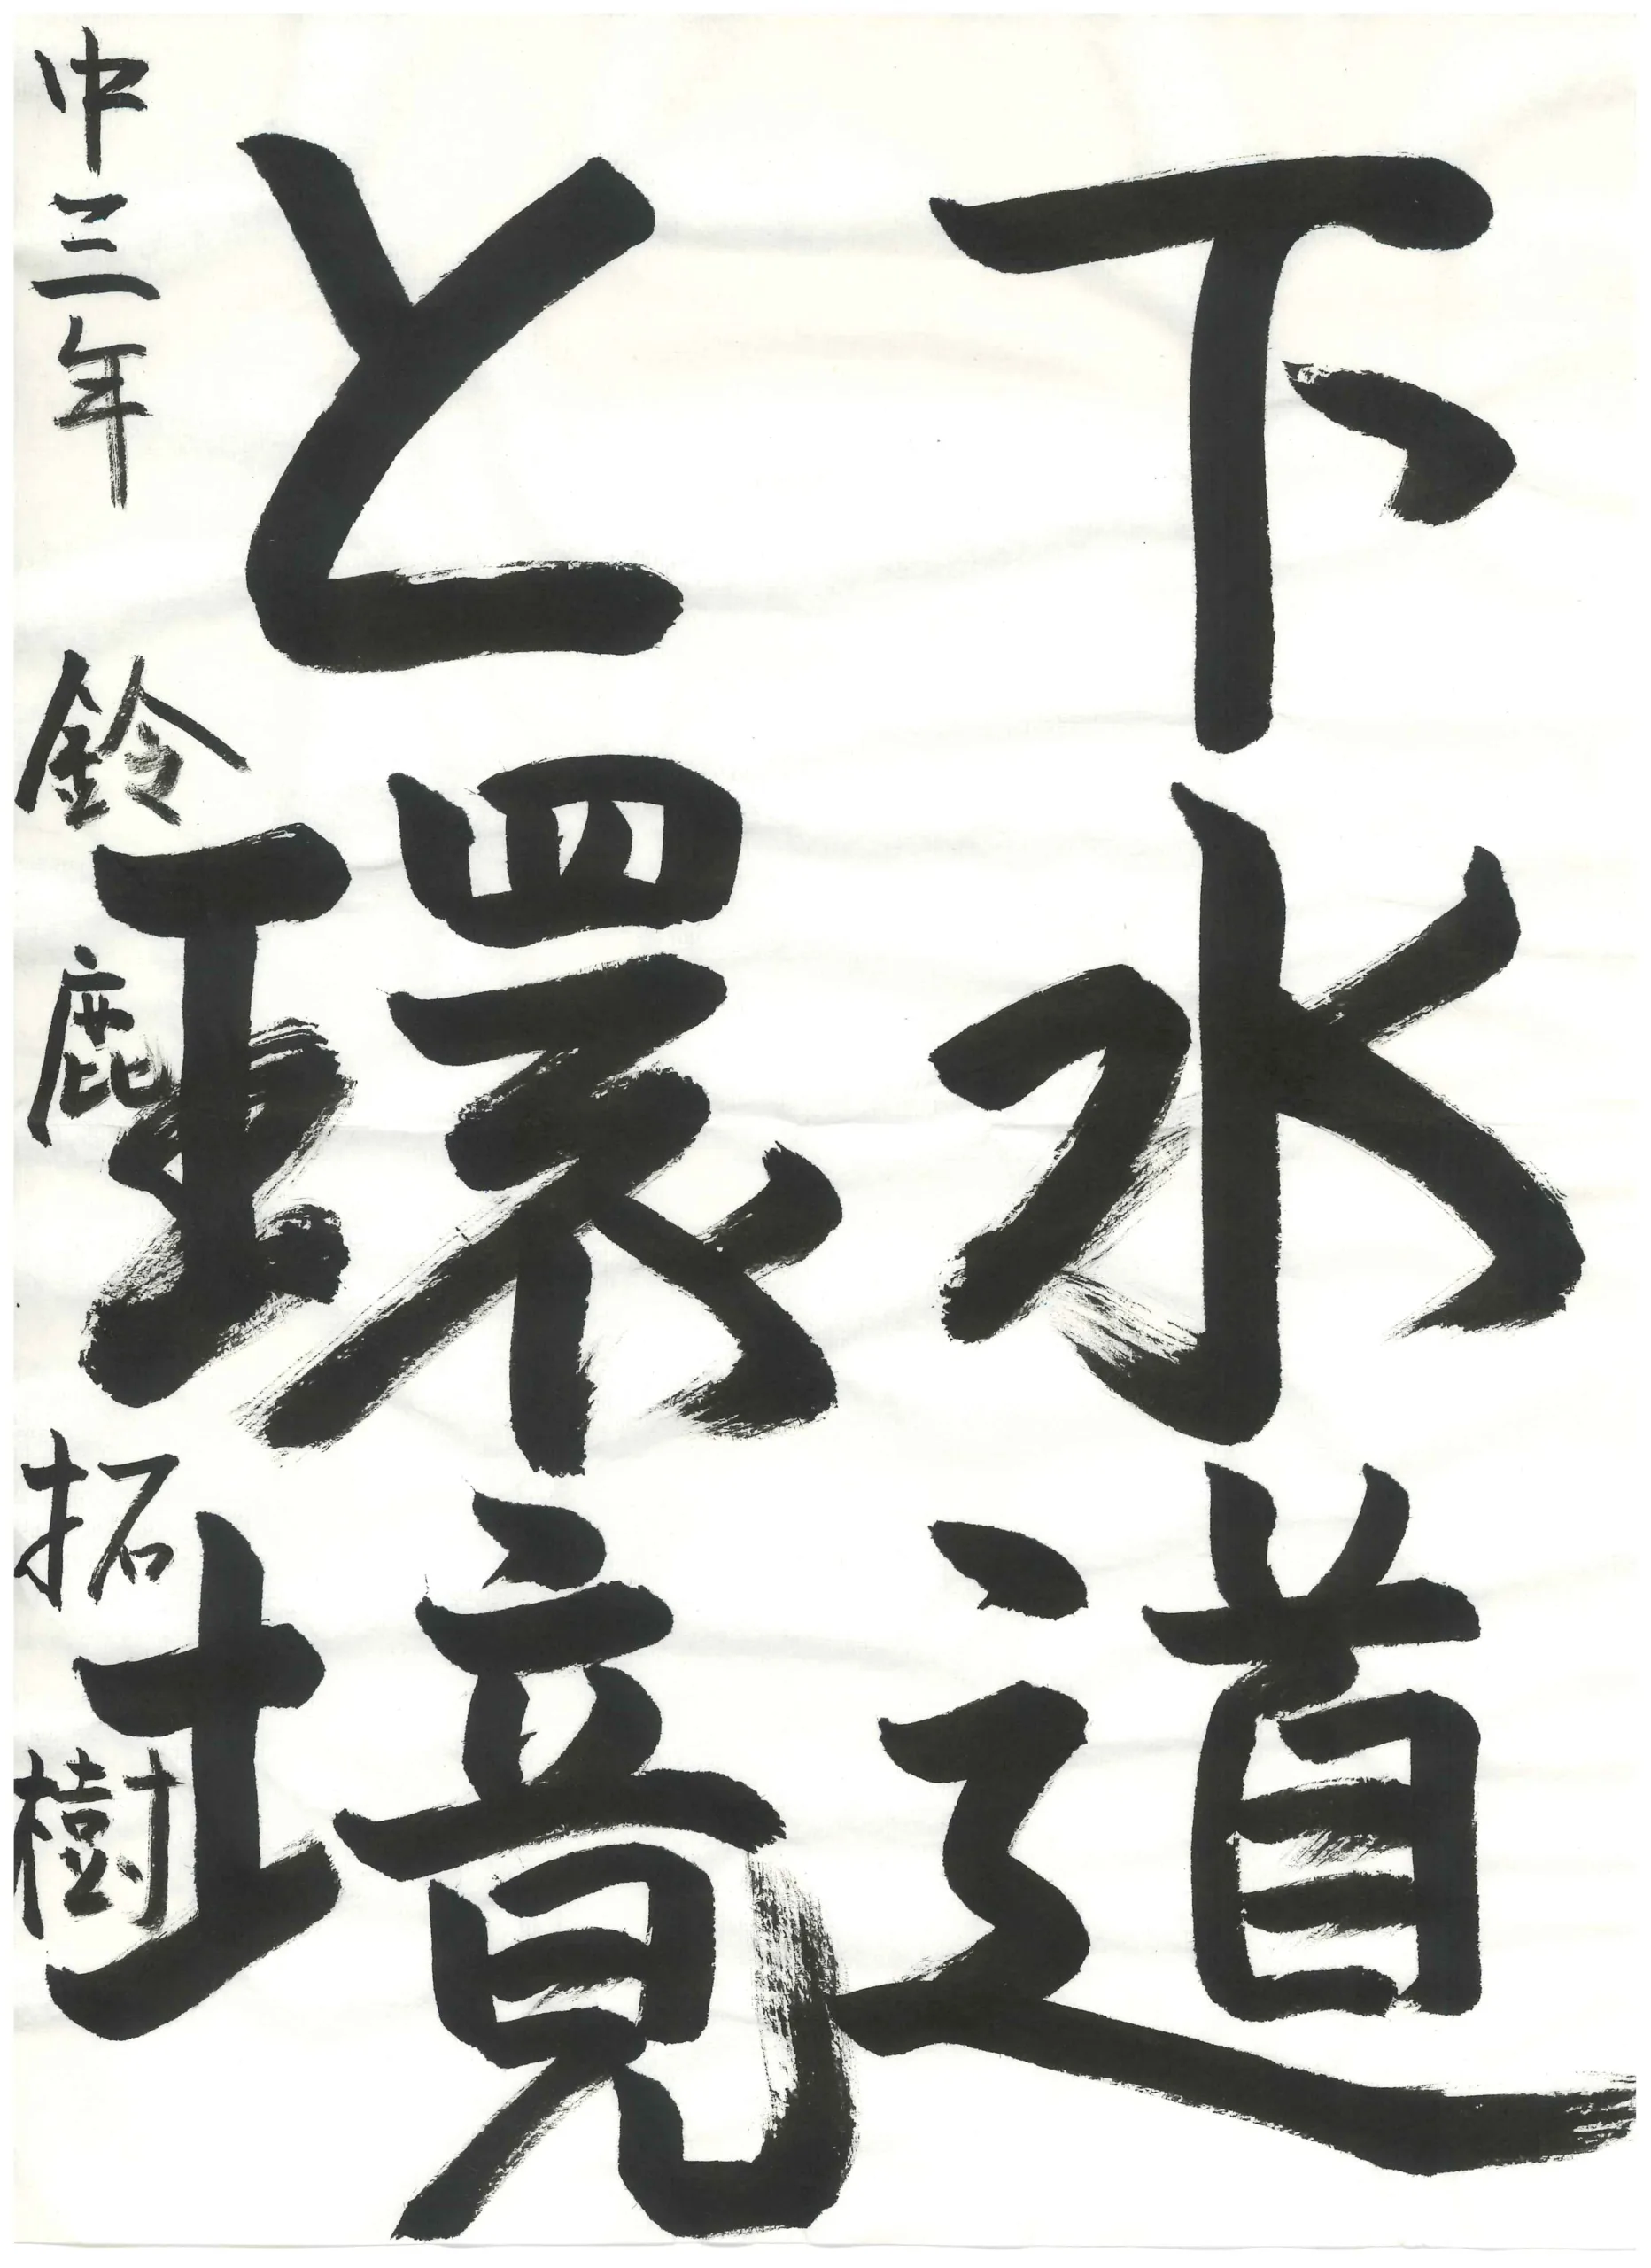 下水道
と環境
中三年 鈴鹿拓樹